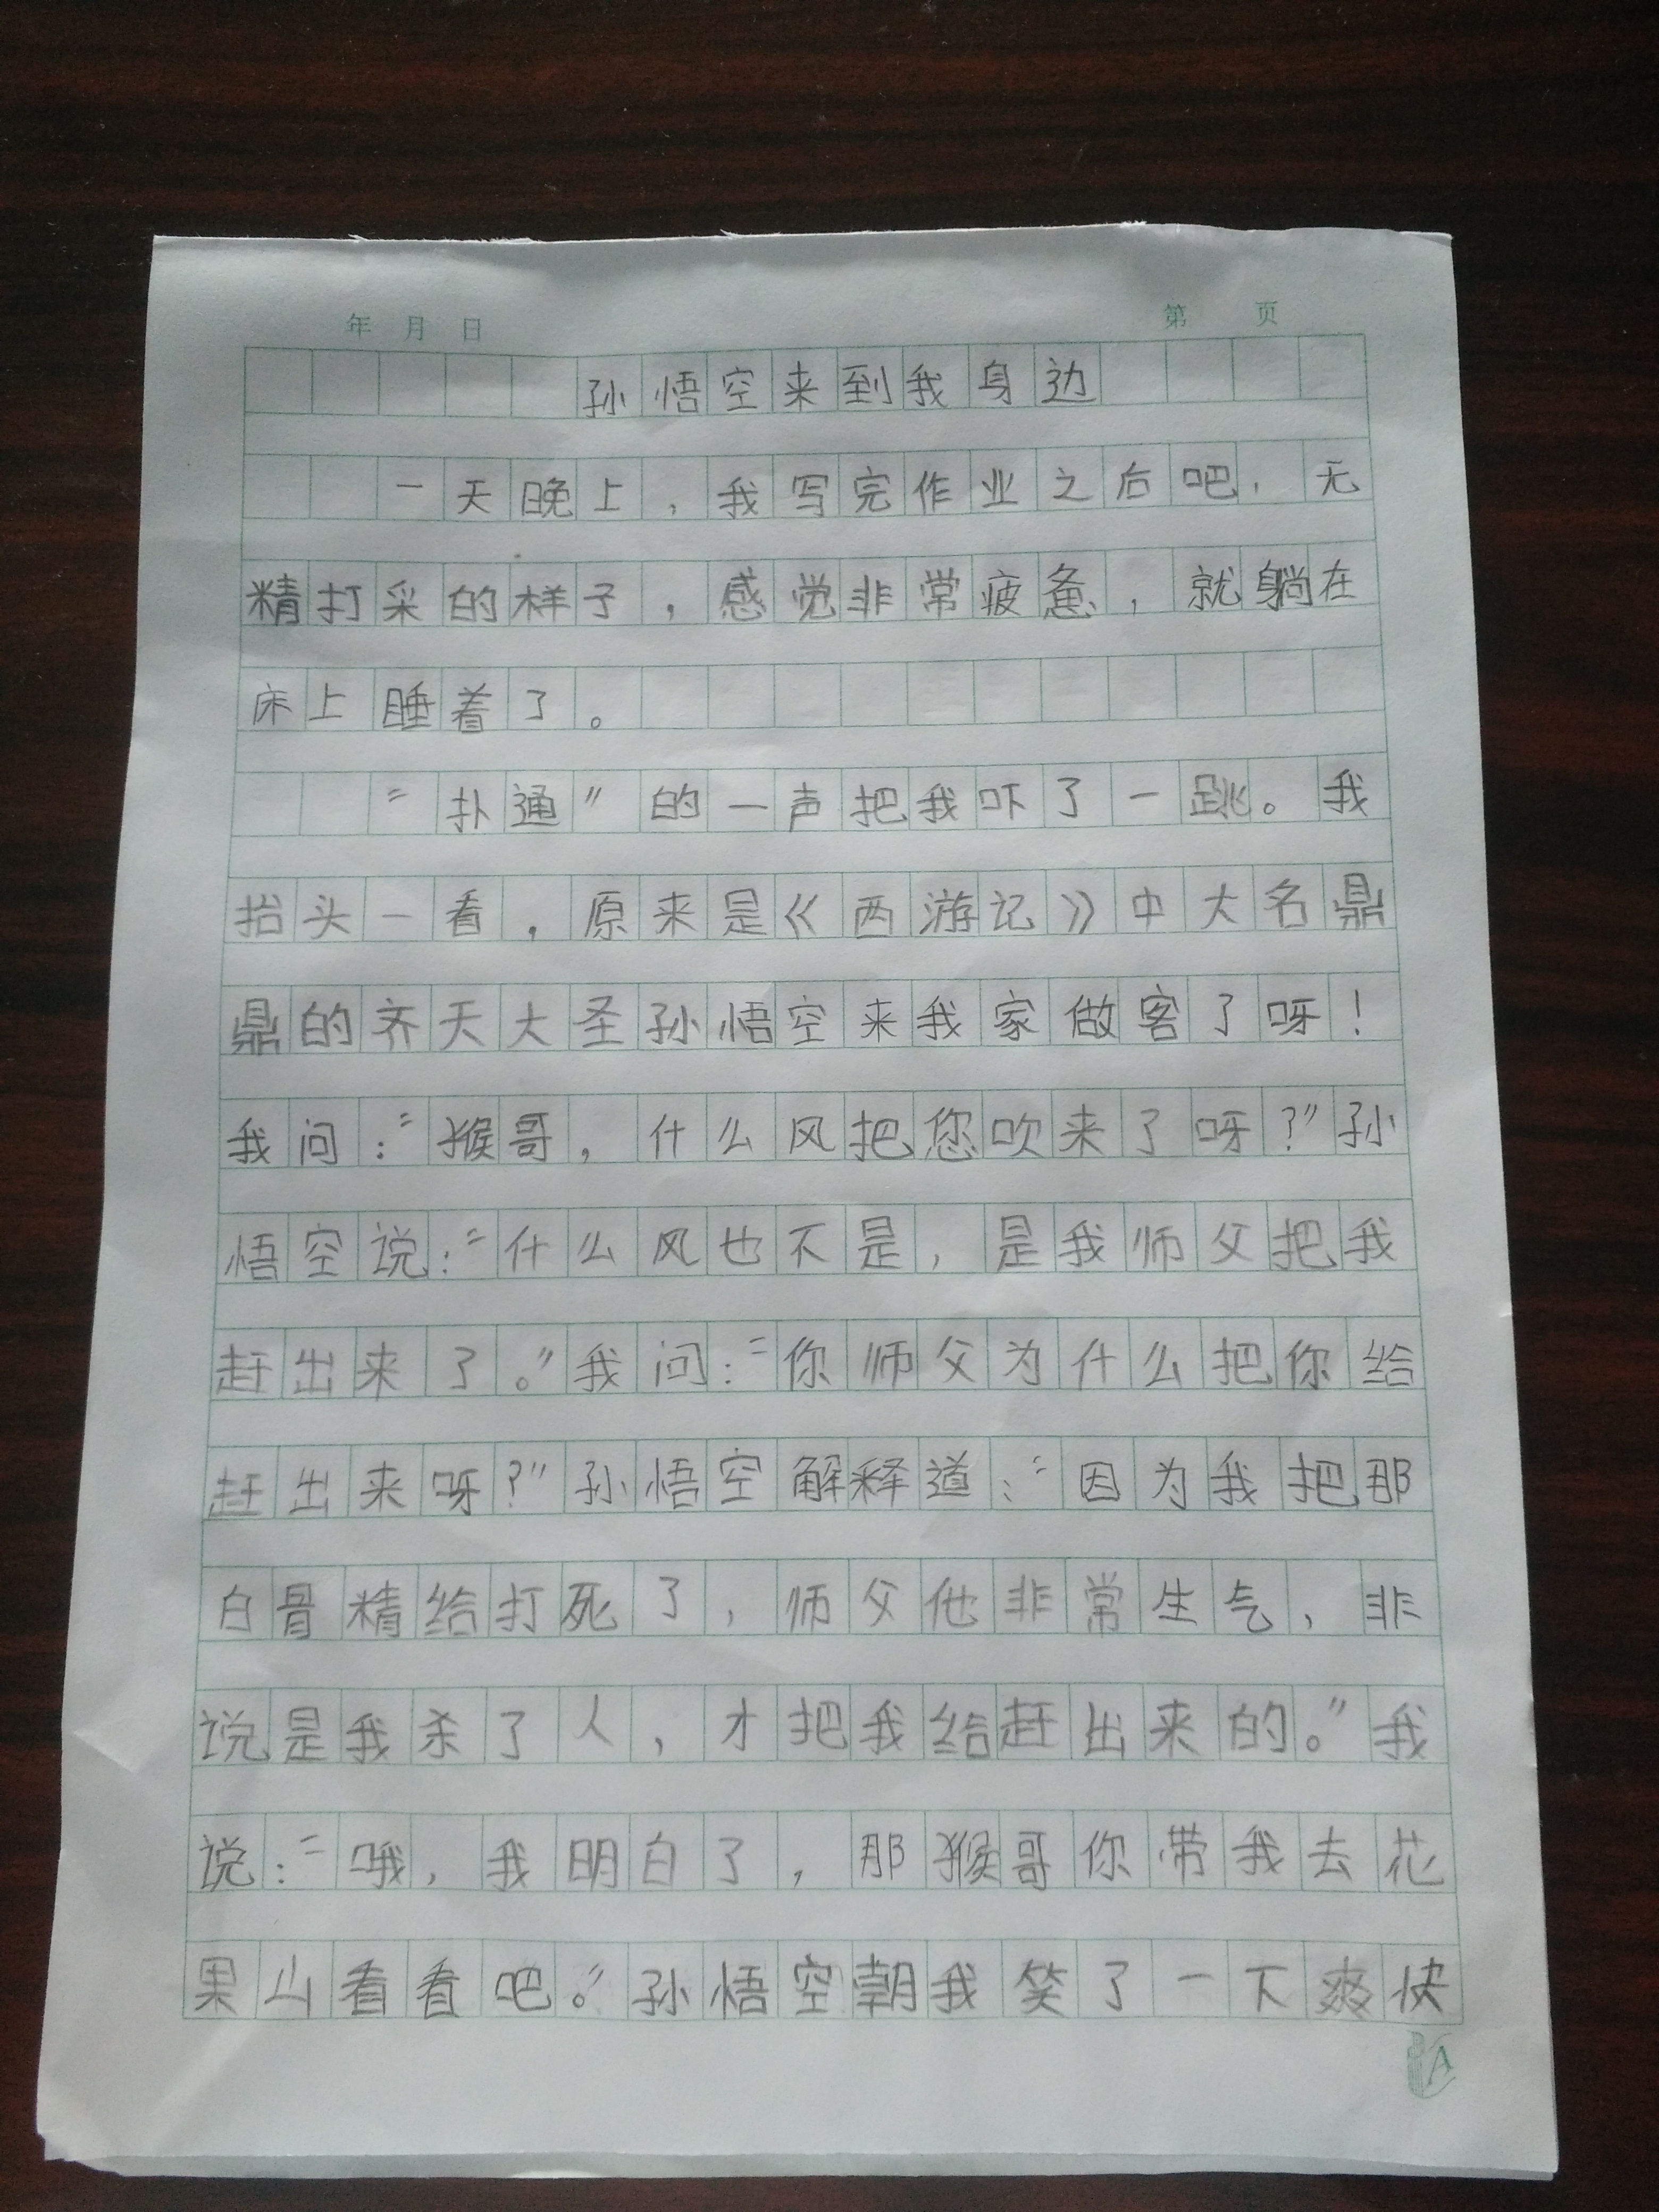 年 月 日 第 页
孙悟空来到我身边
一天晚上，我写完作业之后吧，无
精打采的样子，感觉非常疲惫，就躺在
床上睡着了。
“扑通”的一声把我吓了一跳。我
抬头一看，原来是《西游记》中大名鼎
鼎的齐天大圣孙悟空来我家做客了呀！
我问：“猴哥，什么风把您吹来了呀？”孙
悟空说：“什么风也不是，是我师父把我
赶出来了。”我问：“你师父为什么把你给
赶出来呀？”孙悟空解释道：“因为我把那
白骨精给打死了，师父他非常生气，非
说是我杀了人，才把我给赶出来的。”我
说：“哦，我明白了，那猴哥你带我去花
果山看看吧。”孙悟空朝我笑了一下爽快